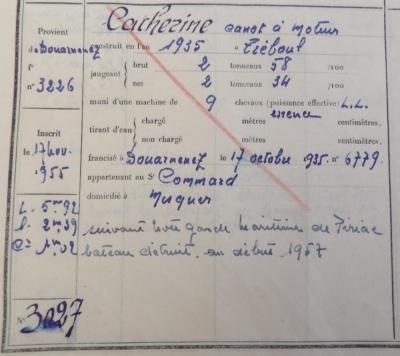 Catherine canot à moteur
Provient
de Douarnenez
fo
n° 3226
Inscrit
le 17 nov.
1955
L. 5m92
l. 2m39
Cx 1m02
N° 3027
construit en l'an 1935 à Tréboul
jaugeant { brut 2 tonneaux 58 /100
net 2 tonneaux 34 /100
muni d'une machine de 9 chevaux (puissance effective) L.L.
essence
tirant d'eau { chargé mètres centimètres,
non chargé mètres centimètres.
francisé à Douarnenez le 17 octobre 1935. n° 6779.
appartenant au Sr Commard
domicilié à
suivant note garde maritime de Piriac
bateau détruit au début 1957